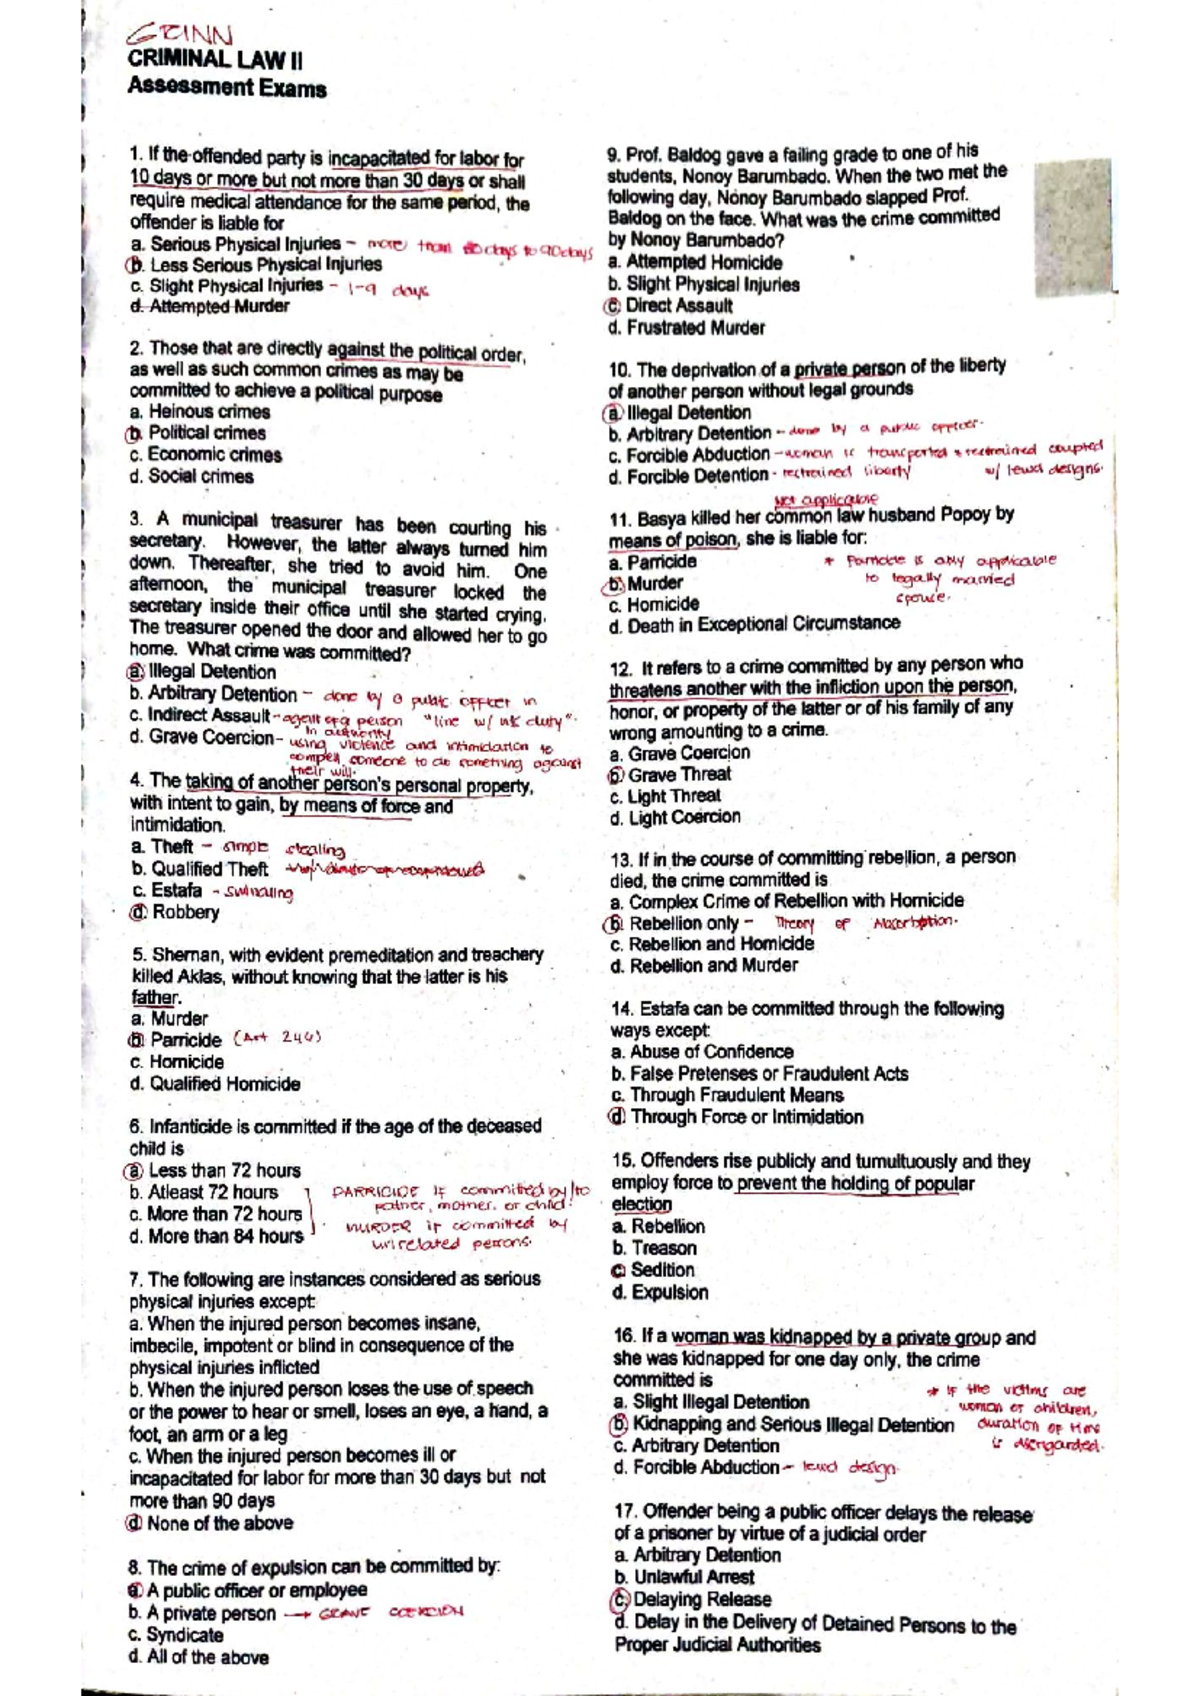 GRINN
CRIMINAL LAW II
Assessment Exams
1. If the offended party is incapacitated for labor for
10 days or more but not more than 30 days or shall
require medical attendance for the same period, the
offender is liable for
a. Serious Physical Injuries – more than 30 days to 90 days
b. Less Serious Physical Injuries
c. Slight Physical Injuries – 1-9 days
d. Attempted Murder
2. Those that are directly against the political order,
as well as such common crimes as may be
committed to achieve a political purpose
a. Heinous crimes
b. Political crimes
c. Economic crimes
d. Social crimes
3. A municipal treasurer has been courting his
secretary. However, the latter always turned him
down. Thereafter, she tried to avoid him. One
afternoon, the municipal treasurer locked the
secretary inside their office until she started crying.
The treasurer opened the door and allowed her to go
home. What crime was committed?
a. Illegal Detention
b. Arbitrary Detention – done by a public officer in
c. Indirect Assault – agent of a person "line w/ ink duty".
in authority
d. Grave Coercion – using violence and intimidation to
compel someone to do something against
their will.
4. The taking of another person's personal property,
with intent to gain, by means of force and
intimidation.
a. Theft – simple stealing
b. Qualified Theft
c. Estafa - swindling
d. Robbery
5. Sheman, with evident premeditation and treachery
killed Aklas, without knowing that the latter is his
father.
a. Murder
b. Parricide (Art 246)
c. Homicide
d. Qualified Homicide
6. Infanticide is committed if the age of the deceased
child is
a. Less than 72 hours
b. Atleast 72 hours PARRICIDE if committed by/to
c. More than 72 hours father, mother. or child.
d. More than 84 hours MURDER if committed by
unrelated persons.
7. The following are instances considered as serious
physical injuries except:
a. When the injured person becomes insane,
imbecile, impotent or blind in consequence of the
physical injuries inflicted
b. When the injured person loses the use of speech
or the power to hear or smell, loses an eye, a hand, a
foot, an arm or a leg
c. When the injured person becomes ill or
incapacitated for labor for more than 30 days but not
more than 90 days
d. None of the above
8. The crime of expulsion can be committed by:
a. A public officer or employee
b. A private person → GRAVE COERCION
c. Syndicate
d. All of the above
9. Prof. Baldog gave a failing grade to one of his
students, Nonoy Barumbado. When the two met the
following day, Nonoy Barumbado slapped Prof.
Baldog on the face. What was the crime committed
by Nonoy Barumbado?
a. Attempted Homicide
b. Slight Physical Injuries
c. Direct Assault
d. Frustrated Murder
10. The deprivation of a private person of the liberty
of another person without legal grounds
a. Illegal Detention
b. Arbitrary Detention – done by a public officer.
c. Forcible Abduction – woman is transported & restrained coupled
w/ lewd designs.
d. Forcible Detention - restrained liberty
Not applicable
11. Basya killed her common law husband Popoy by
means of poison, she is liable for:
a. Parricide * Parricide is only applicable
b. Murder to legally married
c. Homicide spouse.
d. Death in Exceptional Circumstance
12. It refers to a crime committed by any person who
threatens another with the infliction upon the person,
honor, or property of the latter or of his family of any
wrong amounting to a crime.
a. Grave Coercion
b. Grave Threat
c. Light Threat
d. Light Coercion
13. If in the course of committing rebellion, a person
died, the crime committed is
a. Complex Crime of Rebellion with Homicide
b. Rebellion only – Theory of Absorbtion.
c. Rebellion and Homicide
d. Rebellion and Murder
14. Estafa can be committed through the following
ways except:
a. Abuse of Confidence
b. False Pretenses or Fraudulent Acts
c. Through Fraudulent Means
d. Through Force or Intimidation
15. Offenders rise publicly and tumultuously and they
employ force to prevent the holding of popular
election
a. Rebellion
b. Treason
c. Sedition
d. Expulsion
16. If a woman was kidnapped by a private group and
she was kidnapped for one day only, the crime
committed is
a. Slight Illegal Detention * If the victims are
woman or children,
b. Kidnapping and Serious Illegal Detention duration of time
c. Arbitrary Detention is disregarded.
d. Forcible Abduction – lewd design.
17. Offender being a public officer delays the release
of a prisoner by virtue of a judicial order
a. Arbitrary Detention
b. Unlawful Arrest
c. Delaying Release
d. Delay in the Delivery of Detained Persons to the
Proper Judicial Authorities